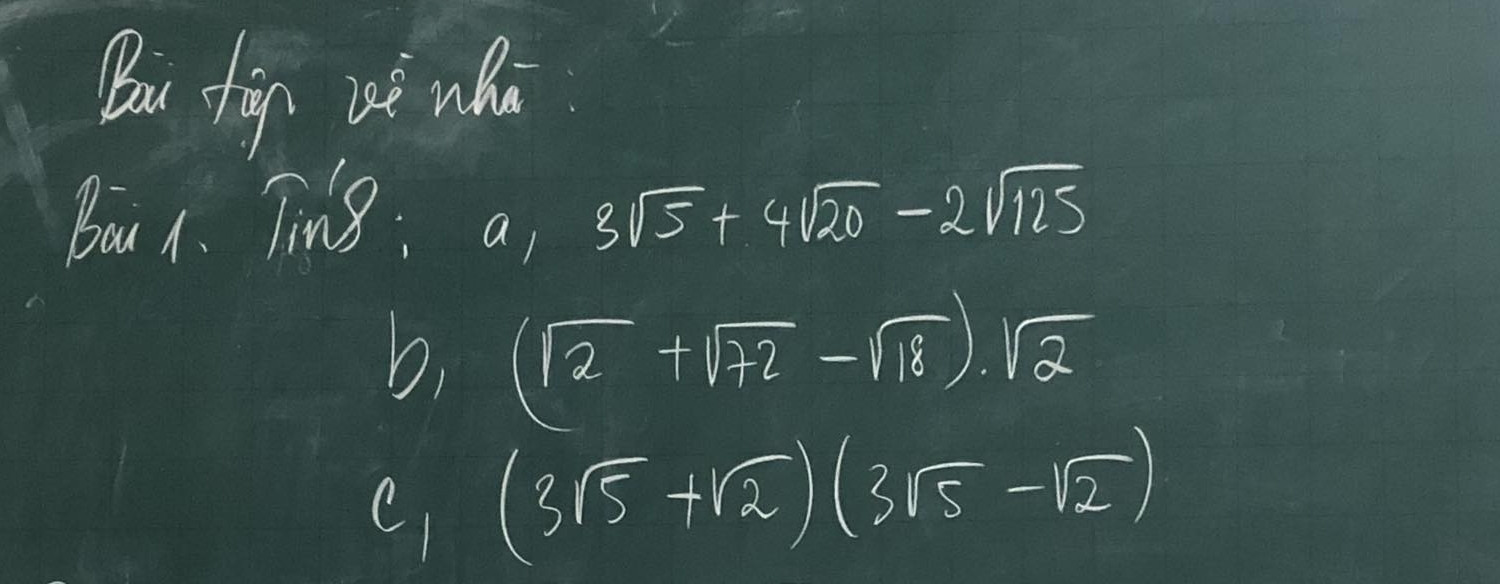 Bài tập về nhà:
Bài 1. Tính: a, 3√5 + 4√20 - 2√125
b, (√2 + √72 - √18).√2
c, (3√5 + √2)(3√5 - √2)